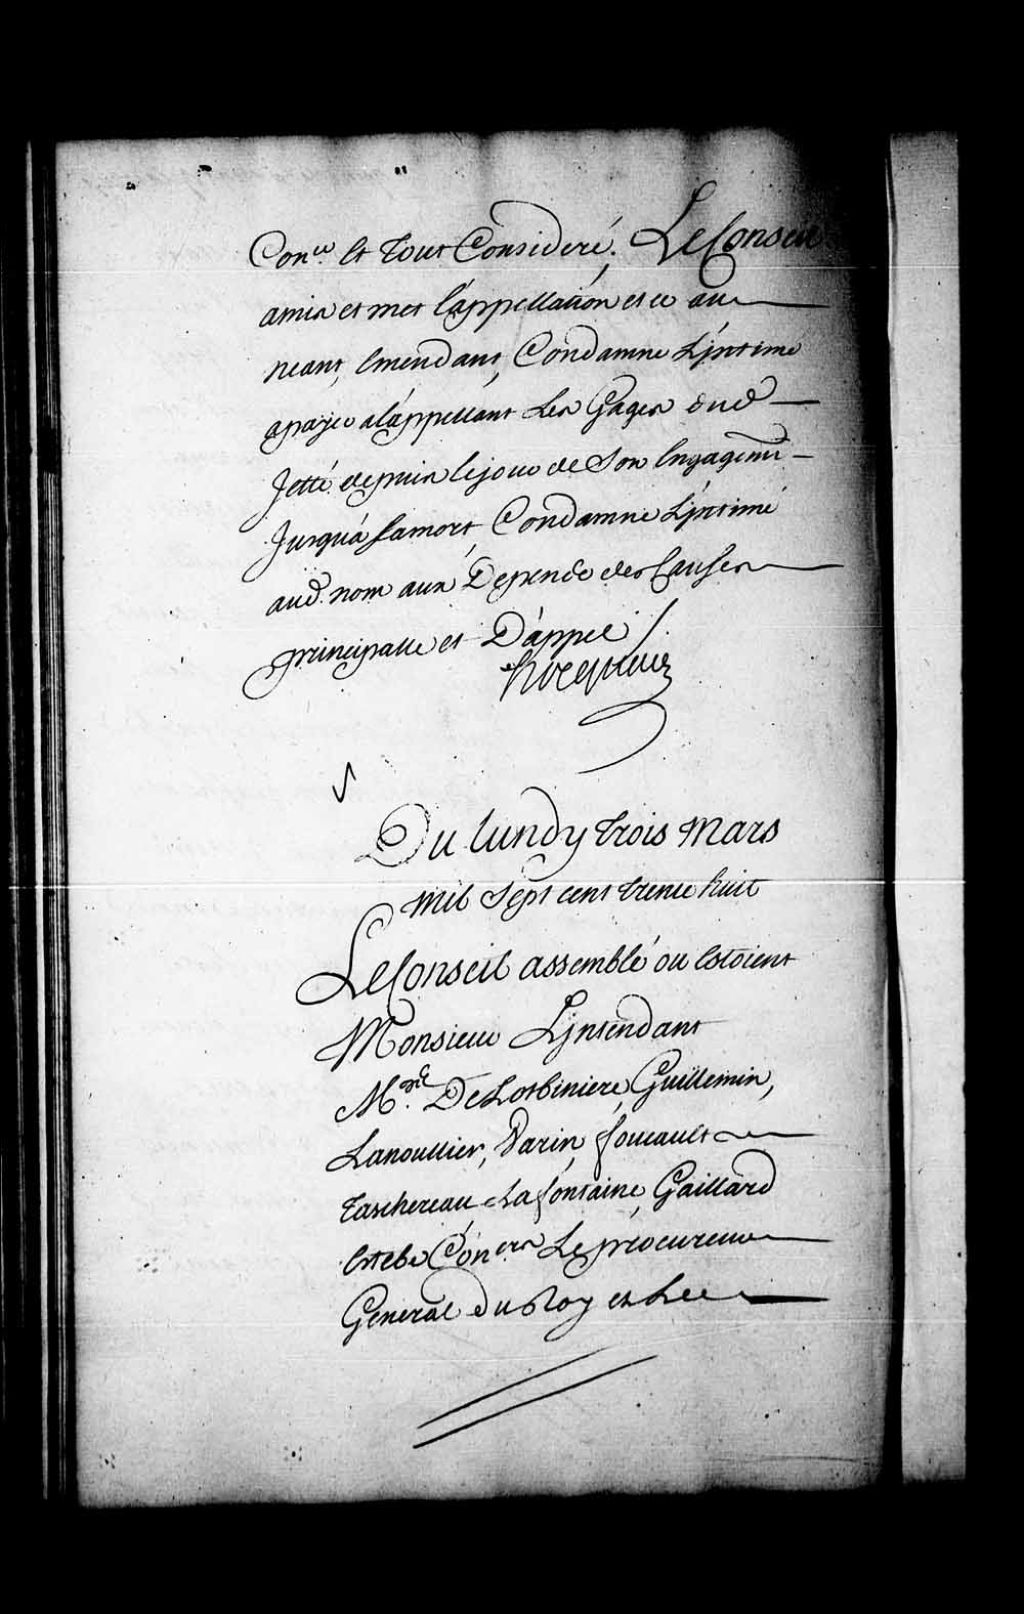 Con.er Et Tout Consideré. Le Conseil
amis et met l'appellation et ce au
neant, Emendant, Condamne L'jntimé
apayer al'appellant Les Gages dud
Jetté depuis lejour de Son Engagemt
Jusqu'a Samort, Condamne L'jntimé
aud. nom aux Depends des Causes
principalle et D'appel /
Hocquart
Du Lundy trois Mars
mil Sept cent trente huit
Le Conseil assemblé ou Estoient
Monsieur L'jntendant
M.rs De Lotbiniere, Guillemin,
Lanoullier, Varin, foucault
Taschereau Lafontaine, Gaillard
Estebe Con.ers Le procureur
General du Roy et Le